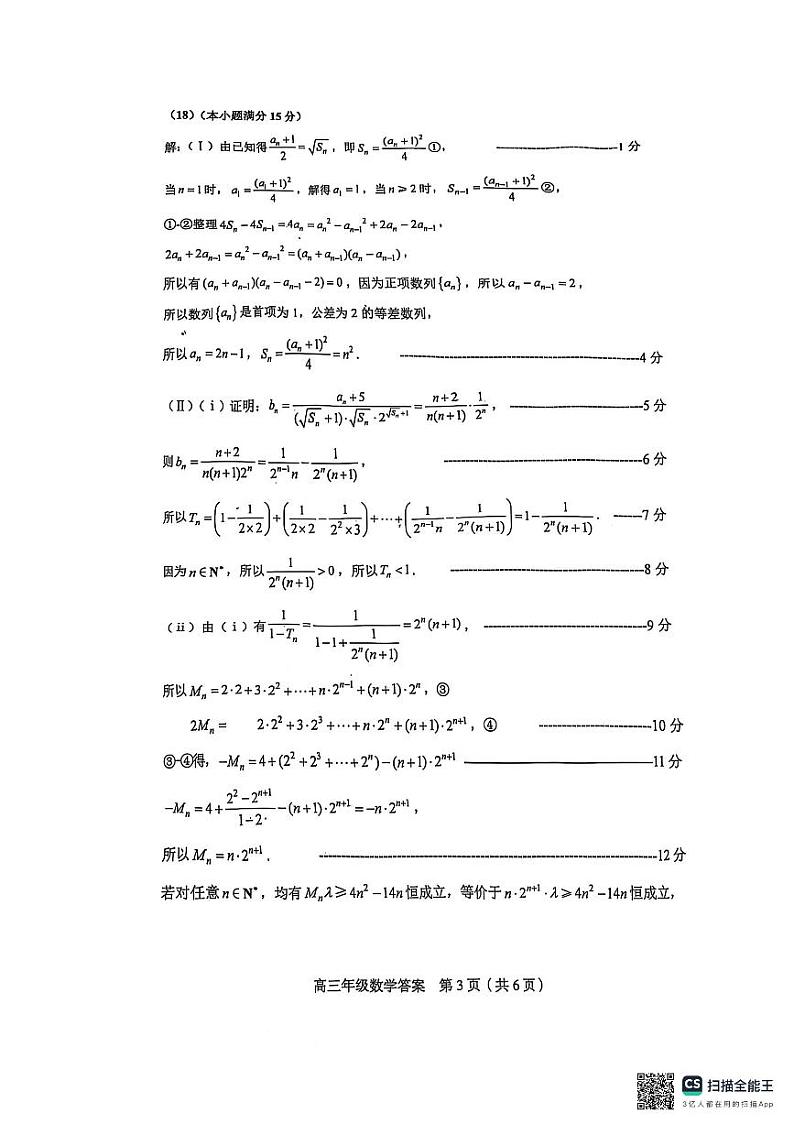 (18)(本小题满分 15 分)
解:(Ⅰ)由已知得 \frac{a_n+1}{2}=\sqrt{S_n},即 S_n=\frac{(a_n+1)^2}{4}①, ————1 分
当 n=1 时,a_1=\frac{(a_1+1)^2}{4},解得 a_1=1,当 n≥2 时,S_{n-1}=\frac{(a_{n-1}+1)^2}{4}②,
①-②整理 4S_n-4S_{n-1}=4a_n=a_n^2-a_{n-1}^2+2a_n-2a_{n-1},
2a_n+2a_{n-1}=a_n^2-a_{n-1}^2=(a_n+a_{n-1})(a_n-a_{n-1}),
所以有(a_n+a_{n-1})(a_n-a_{n-1}-2)=0,因为正项数列{a_n},所以 a_n-a_{n-1}=2,
所以数列{a_n}是首项为 1,公差为 2 的等差数列,
所以 a_n=2n-1,S_n=\frac{(a_n+1)^2}{4}=n^2. ————4 分
(Ⅱ)(ⅰ)证明:b_n=\frac{a_n+5}{(\sqrt{S_n}+1)·\sqrt{S_n}·2^{\sqrt{S_n}+1}}=\frac{n+2}{n(n+1)}·\frac{1}{2^n}, ————5 分
则 b_n=\frac{n+2}{n(n+1)2^n}=\frac{1}{2^{n-1}n}-\frac{1}{2^n(n+1)}, ————6 分
所以 T_n=(1-\frac{1}{2×2})+(\frac{1}{2×2}-\frac{1}{2^2×3})+⋯+(\frac{1}{2^{n-1}n}-\frac{1}{2^n(n+1)})=1-\frac{1}{2^n(n+1)}. ————7 分
因为 n∈N*,所以\frac{1}{2^n(n+1)}>0,所以 T_n<1. ————8 分
(ⅱ)由(ⅰ)有\frac{1}{1-T_n}=\frac{1}{1-1+\frac{1}{2^n(n+1)}}=2^n(n+1), ————9 分
所以 M_n=2·2+3·2^2+⋯+n·2^{n-1}+(n+1)·2^n,③
2M_n= 2·2^2+3·2^3+⋯+n·2^n+(n+1)·2^{n+1},④ ————10 分
③-④得,-M_n=4+(2^2+2^3+⋯+2^n)-(n+1)·2^{n+1} ————11 分
-M_n=4+\frac{2^2-2^{n+1}}{1-2}-(n+1)·2^{n+1}=-n·2^{n+1},
所以 M_n=n·2^{n+1}. ————12 分
若对任意 n∈N*,均有 M_nλ≥4n^2-14n 恒成立,等价于 n·2^{n+1}·λ≥4n^2-14n 恒成立,
高三年级数学答案 第 3 页(共 6 页)
CS 扫描全能王
3亿人都在用的扫描App